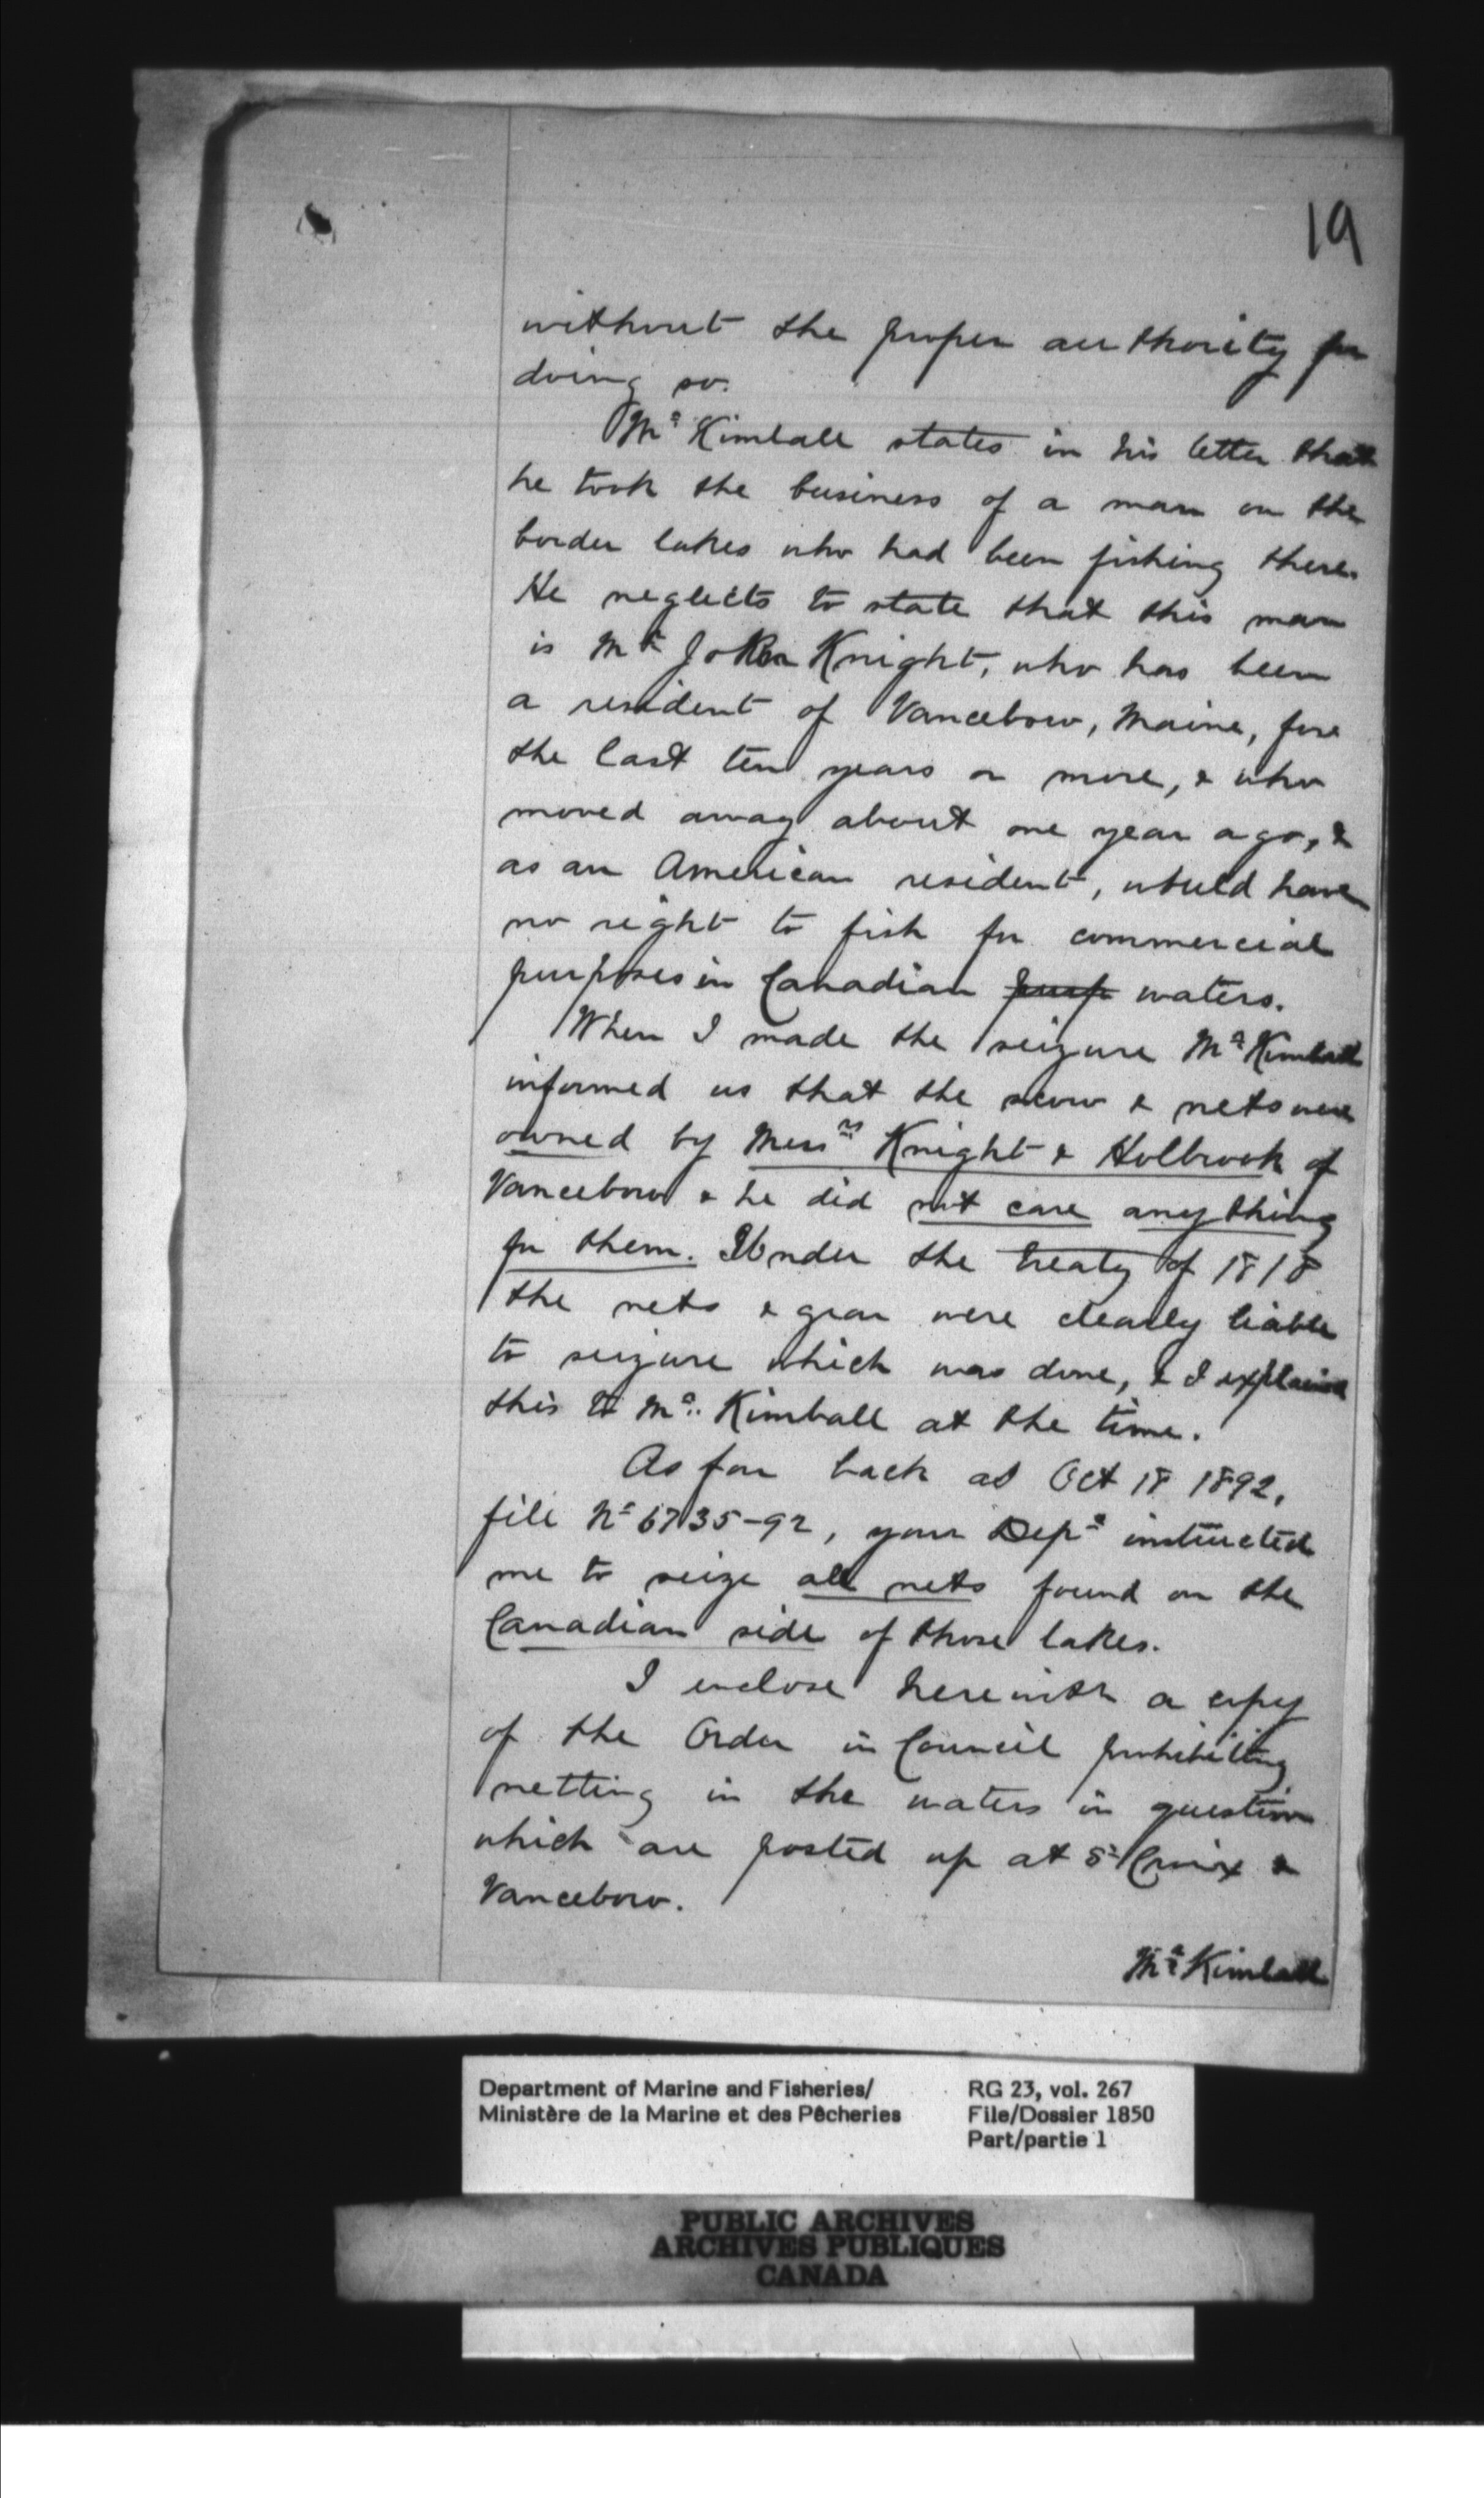 19
without the proper authority for
doing so.
Mr Kimball states in his letter that
he took the business of a man on the
border lakes who had been fishing there.
He neglects to state that this man
is Mr John Knight, who has been
a resident of Vancebow, Maine, for
the last ten years or more, & who
moved away about one year ago, &
as an American resident, would have
no right to fish for commercial
purposes in Canadian purp waters.
When I made the seizure Mr Kimball
informed us that the scow & nets were
owned by Messrs Knight & Holbrook of
Vancebow & he did not care anything
for them. Under the treaty of 1818
the nets & gear were clearly liable
to seizure which was done, & I explained
this to Mr. Kimball at the time.
As far back as Oct 18 1892,
file No 6735-92, your Dept instructed
me to seize all nets found on the
Canadian side of those lakes.
I enclose herewith a copy
of the Order in Council prohibiting
netting in the waters in question
which are posted up at St Croix &
Vancebow.
Mr Kimball
Department of Marine and Fisheries/
Ministère de la Marine et des Pêcheries
RG 23, vol. 267
File/Dossier 1850
Part/partie 1
PUBLIC ARCHIVES
ARCHIVES PUBLIQUES
CANADA